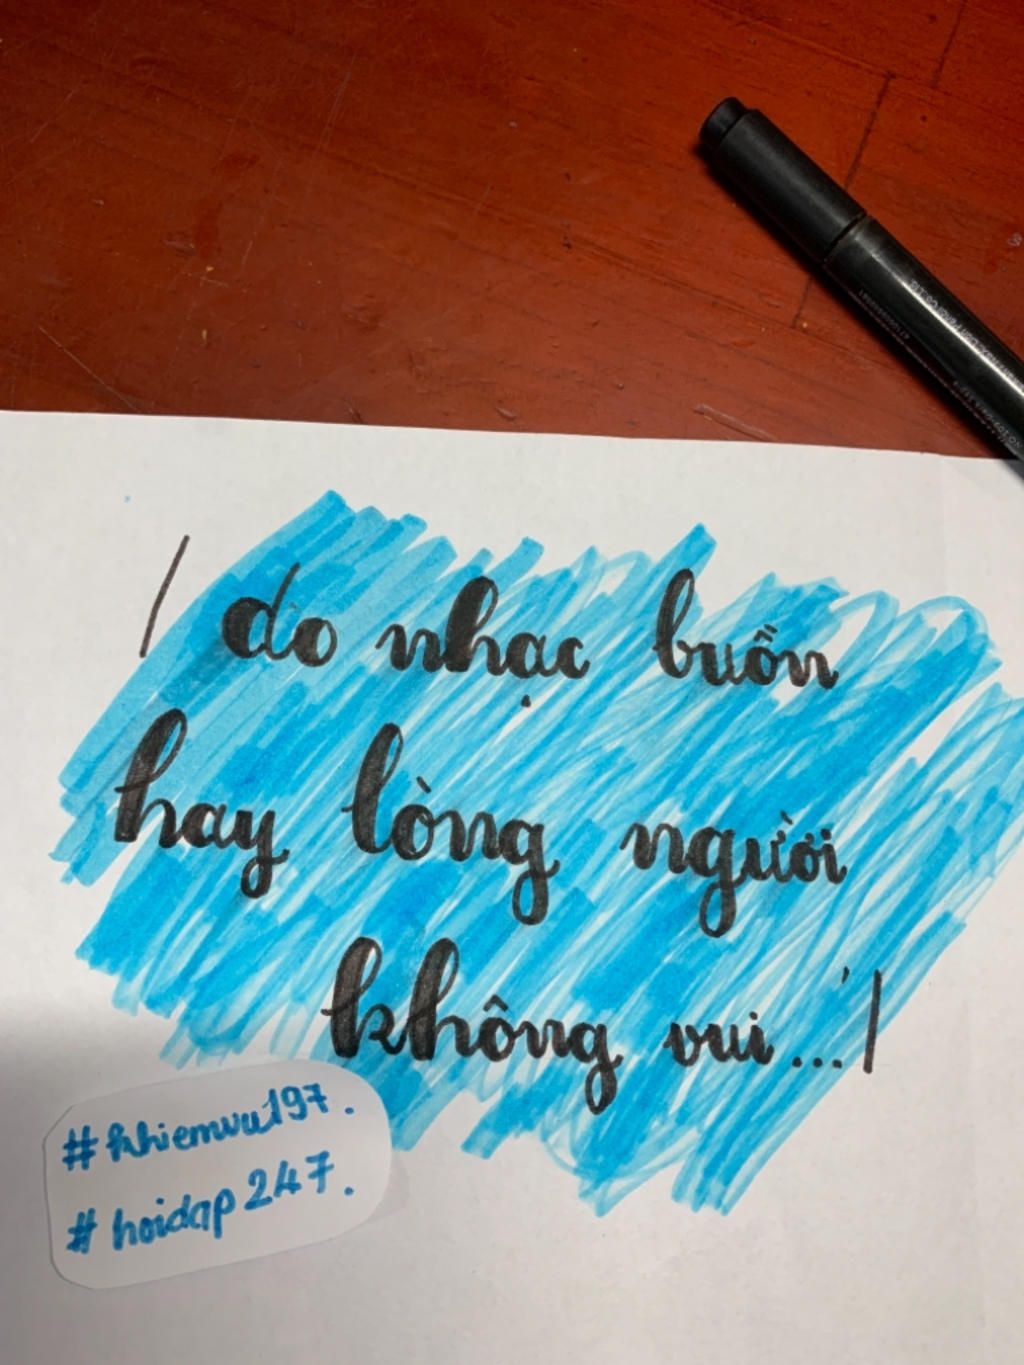 / do nhạc buồn
hay lòng người
không vui.../
#khiemvu197.
#hoidap247.